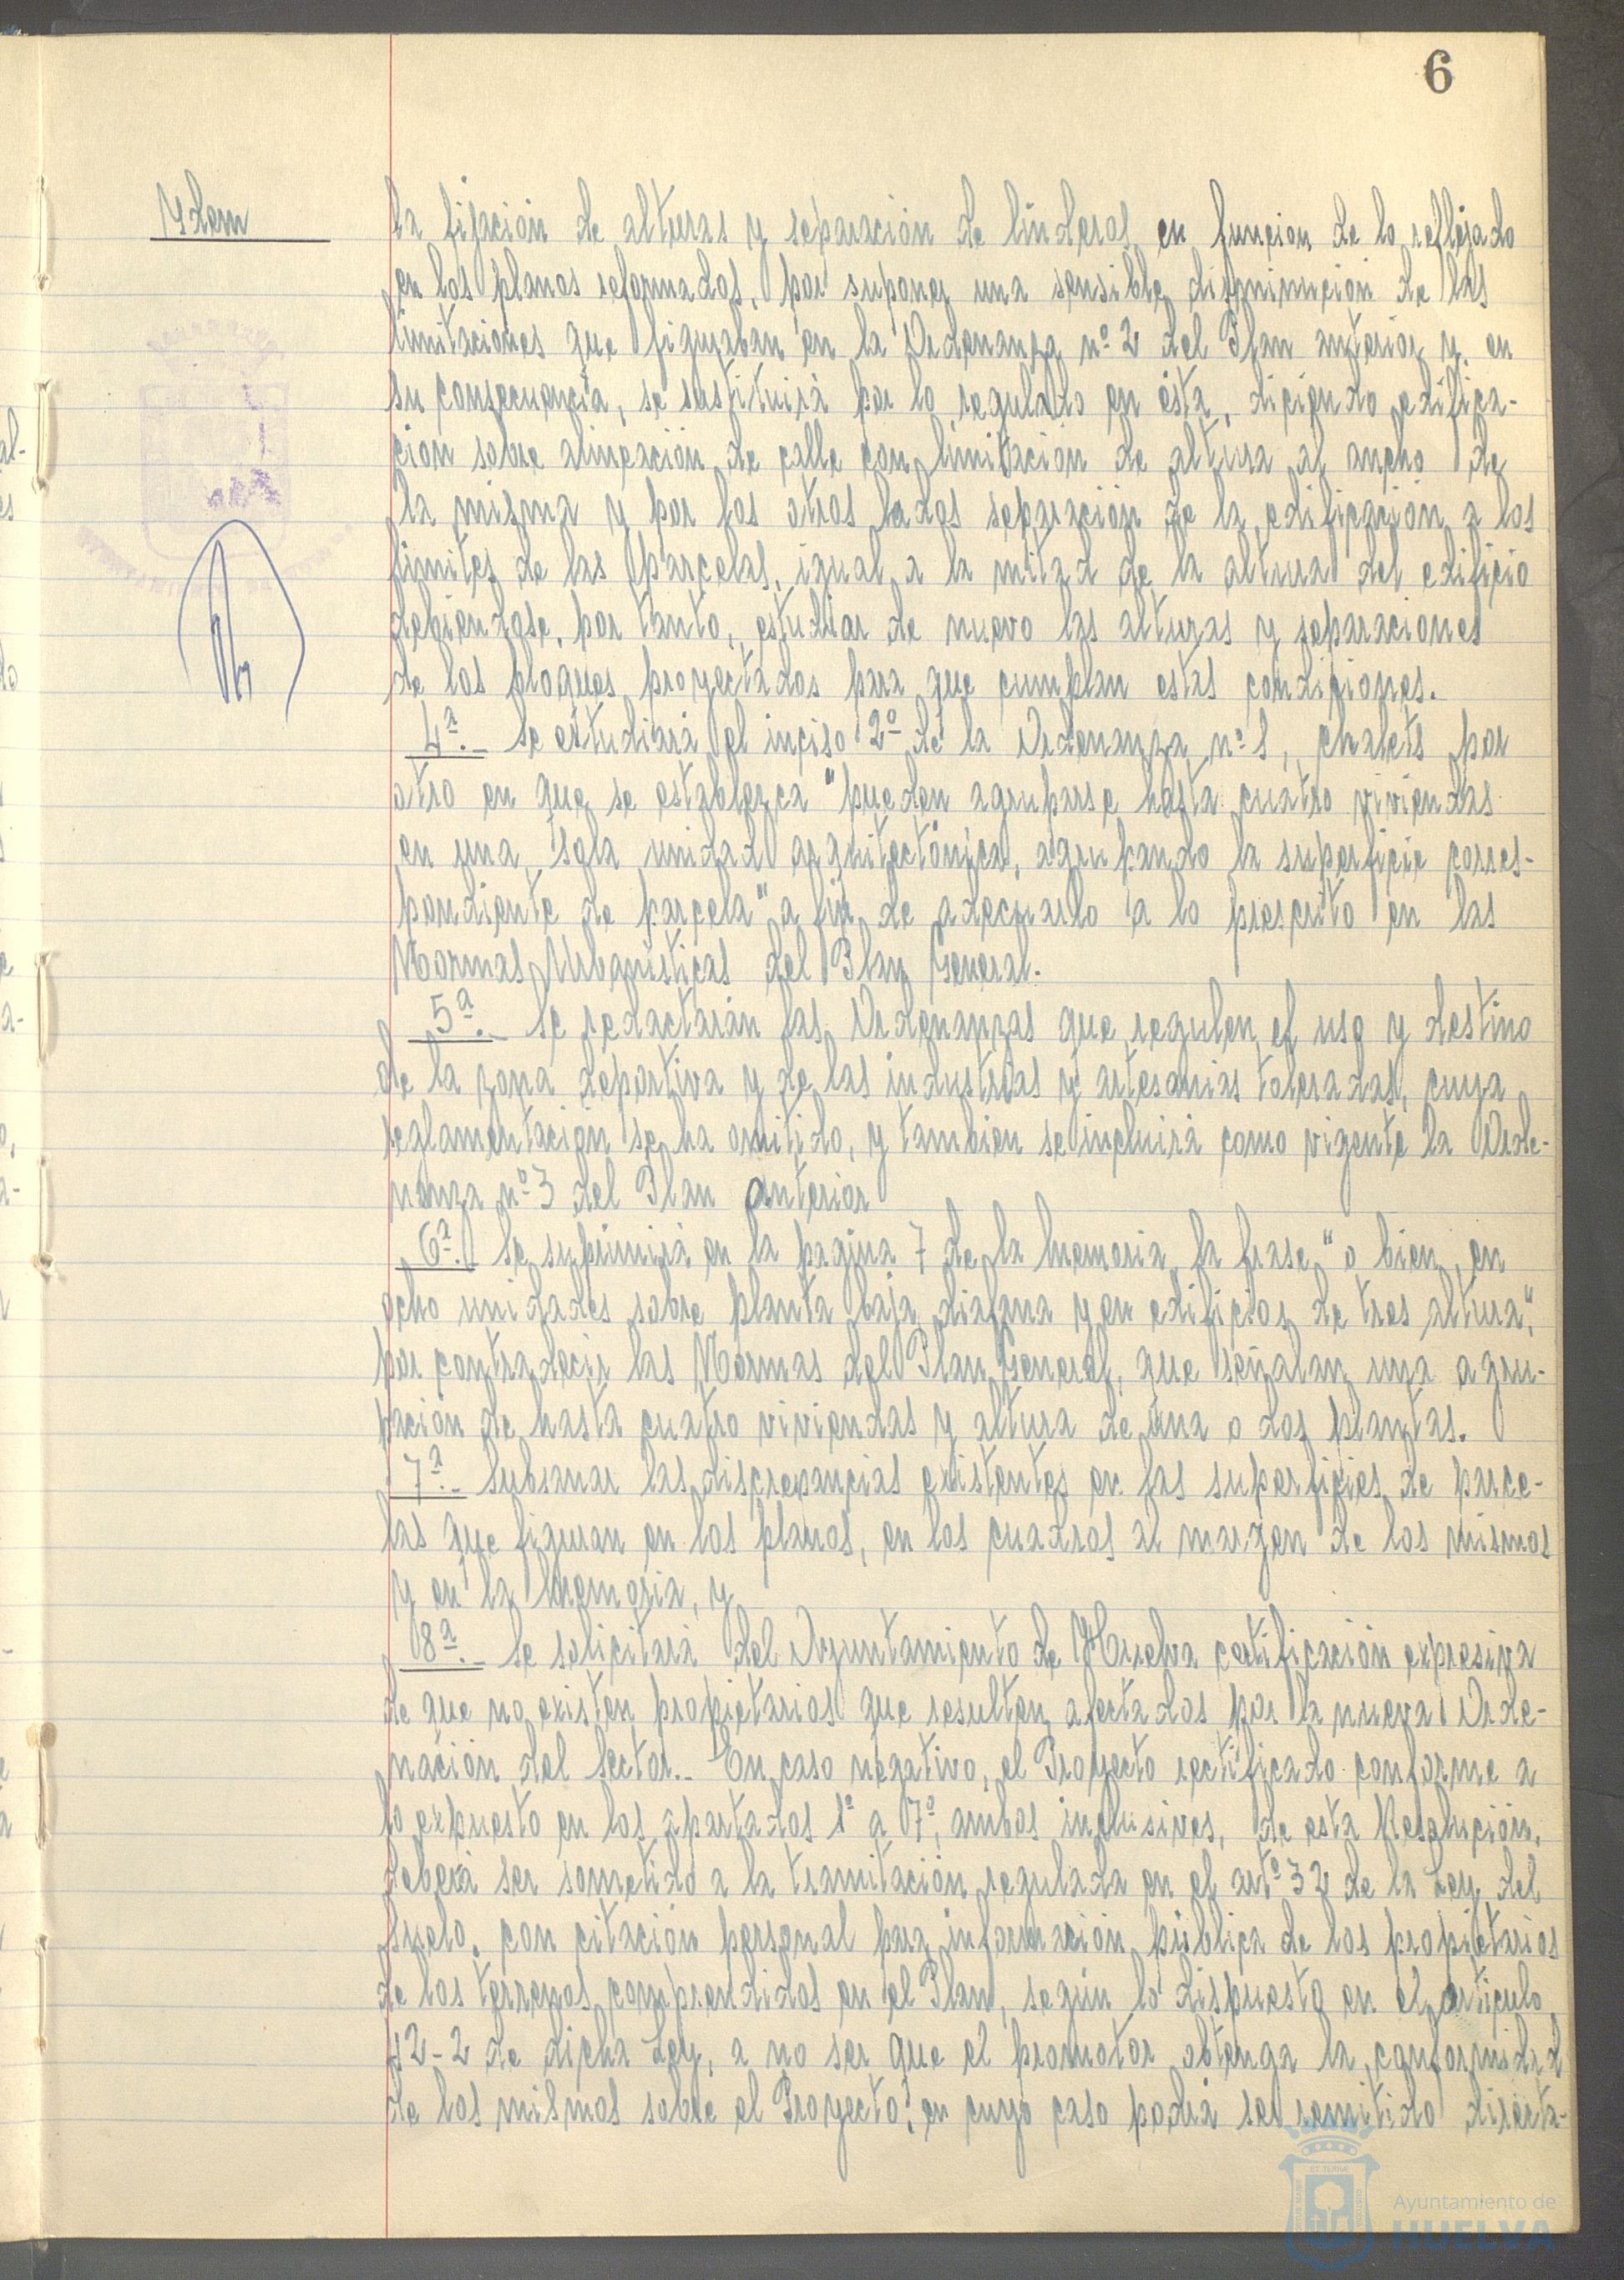 6
Ydem
la fijación de alturas y separación de linderos en funcion de lo reflejado
en los planos reformados, por suponer una sensible disminución de las
limitaciones que figuraban en la Ordenanza nº 2 del Plan anterior y, en
su consecuencia, se sustituirá por lo regulado en ésta, diciendo edifica-
ción sobre alineación de calle con limitación de altura al ancho de
la misma y por los otros lados separación de la edificación a los
limites de las parcelas, igual a la mitad de la altura del edificio
debiendose, por tanto, estudiar de nuevo las alturas y separaciones
de los bloques proyectados para que cumplan estas condiciones.
4ª.- Se estudiará el inciso 2º de la Ordenanza nº 1, chalets por
otro en que se establezca "pueden agruparse hasta cuatro viviendas
en una sola unidad arquitectónica, agrupando la superficie corres-
pondiente de parcela" a fin de adecuarlo a lo prescrito en las
Normas Urbanisticas del Plan General.
5ª.- Se redactarán las Ordenanzas que regulen el uso y destino
de la zona deportiva y de las industrias y artesanias toleradas, cuya
reglamentación se ha omitido, y tambien se incluirá como vigente la Orde-
nanza nº 3 del Plan anterior
6ª.) Se suprimirá en la pagina 7 de la Memoria la frase "o bien, en
ocho unidades sobre planta baja diafana y en edificios de tres altura",
por contradecir las Normas del Plan General, que señalan una agru-
pación de hasta cuatro viviendas y altura de una o dos plantas.
7ª.- Subsanar las discrepancias existentes en las superficies de parce-
las que figuran en los planos, en los cuadros al margen de los mismos
y en la Memoria, y
8ª.- Se solicitará del Ayuntamiento de Huelva certificación expresiva
de que no existen propietarios que resulten afectados por la nueva Orde-
nación del Sector.- En caso negativo, el Proyecto rectificado conforme a
lo expuesto en los apartados 1º a 7º, ambos inclusives, de esta Resolución,
deberá ser sometido a la tramitación regulada en el artº 32 de la Ley del
Suelo, con citación personal para información pública de los propietarios
de los terrenos comprendidos en el Plan, según lo dispuesto en el articulo
42-2 de dicha Ley, a no ser que el promotor obtenga la conformidad
de los mismos sobre el Proyecto, en cuyo caso podrá ser remitido directa-
Ayuntamiento de
HUELVA